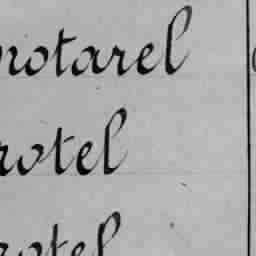 notarel
rotel
rotel